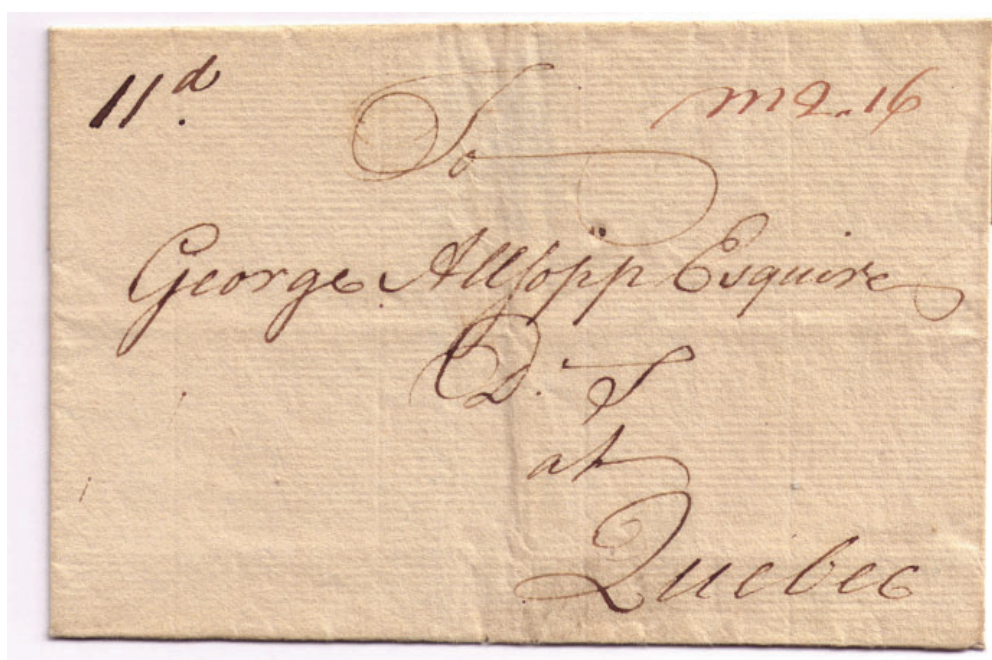 11d.
m 2.16
To
George Allsopp Esquire
D. S
at
Quebec